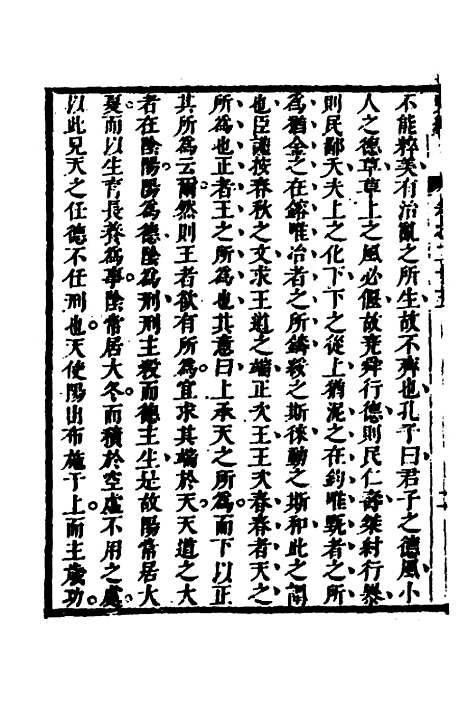 不能粹美有治亂之所生故不齊也孔子曰君子之德風小
人之德草草上之風必偃故堯舜行德則民仁壽桀紂行暴
則民鄙夭夫上之化下下之從上猶泥之在鈞唯甄者之所
為猶金之在鎔唯冶者之所鑄綏之斯徠動之斯和此之謂
也臣謹按春秋之文求王道之端正次王王次春春者天之
所為也正者王之所為也其意曰上承天之所為而下以正
其所為云爾然則王者欲有所為宜求其端於天天道之大
者在陰陽陽為德陰為刑刑主殺而德主生是故陽常居大
夏而以生育長養為事陰常居大冬而積於空虛不用之處
以此見天之任德不任刑也天使陽出布施于上而主歲功